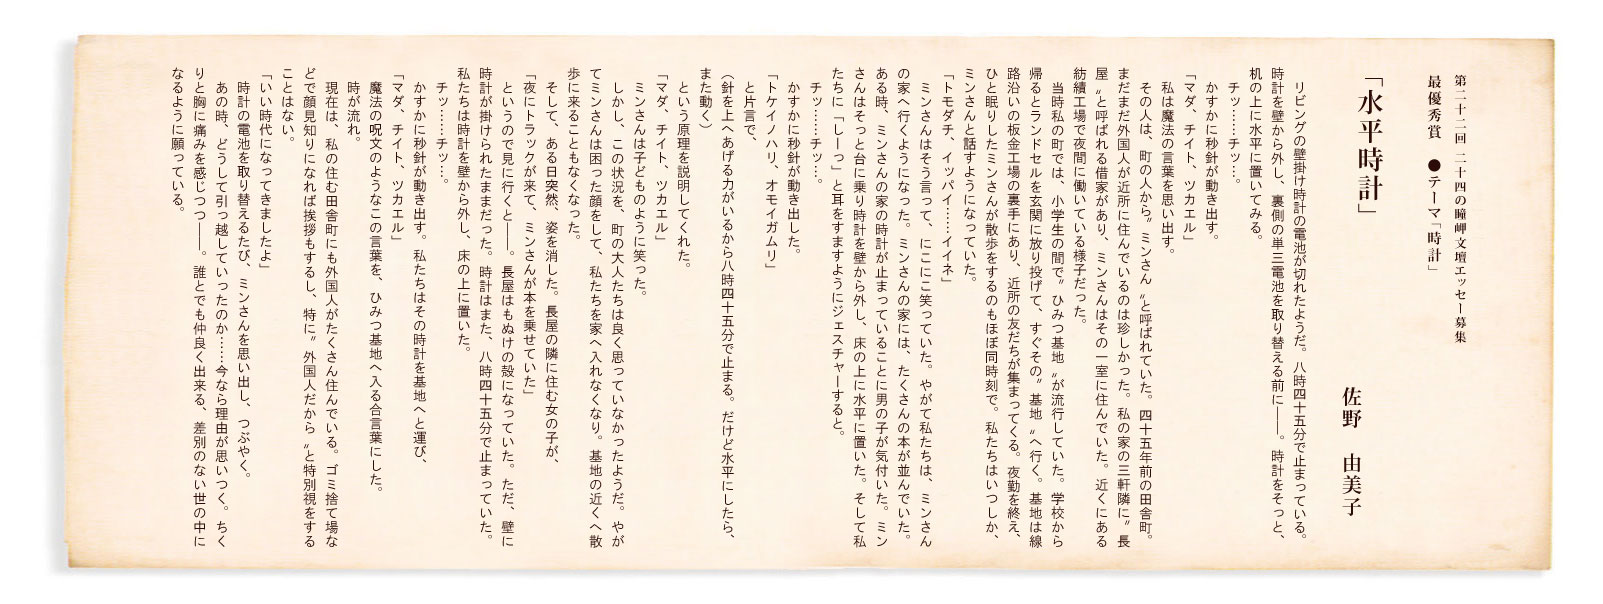 第二十二回 二十四の瞳岬文壇エッセー募集
最優秀賞 ●テーマ「時計」
「水平時計」
佐野 由美子
リビングの壁掛け時計の電池が切れたようだ。八時四十五分で止まっている。
時計を壁から外し、裏側の単三電池を取り替える前に――。時計をそっと、
机の上に水平に置いてみる。
チッ……チッ…。
かすかに秒針が動き出す。
「マダ、チイト、ツカエル」
私は魔法の言葉を思い出す。
その人は、町の人から〝ミンさん〟と呼ばれていた。四十五年前の田舎町。
まだまだ外国人が近所に住んでいるのは珍しかった。私の家の三軒隣に〝長
屋〟と呼ばれる借家があり、ミンさんはその一室に住んでいた。近くにある
紡績工場で夜間に働いている様子だった。
当時私の町では、小学生の間で〝ひみつ基地〟が流行していた。学校から
帰るとランドセルを玄関に放り投げて、すぐその〝基地〟へ行く。基地は線
路沿いの板金工場の裏手にあり、近所の友だちが集まってくる。夜勤を終え、
ひと眠りしたミンさんが散歩をするのもほぼ同時刻で。私たちはいつしか、
ミンさんと話すようになっていた。
「トモダチ、イッパイ……イイネ」
ミンさんはそう言って、にこにこ笑っていた。やがて私たちは、ミンさん
の家へ行くようになった。ミンさんの家には、たくさんの本が並んでいた。
ある時、ミンさんの家の時計が止まっていることに男の子が気付いた。ミン
さんはそっと台に乗り時計を壁から外し、床の上に水平に置いた。そして私
たちに「しーっ」と耳をすますようにジェスチャーすると。
チッ……チッ…。
かすかに秒針が動き出した。
「トケイノハリ、オモイガムリ」
と片言で、
（針を上へあげる力がいるから八時四十五分で止まる。だけど水平にしたら、
また動く）
という原理を説明してくれた。
「マダ、チイト、ツカエル」
ミンさんは子どものように笑った。
しかし、この状況を、町の大人たちは良く思っていなかったようだ。やが
てミンさんは困った顔をして、私たちを家へ入れなくなり。基地の近くへ散
歩に来ることもなくなった。
そして、ある日突然、姿を消した。長屋の隣に住む女の子が、
「夜にトラックが来て、ミンさんが本を乗せていた」
というので見に行くと――。長屋はもぬけの殻になっていた。ただ、壁に
時計が掛けられたままだった。時計はまた、八時四十五分で止まっていた。
私たちは時計を壁から外し、床の上に置いた。
チッ……チッ…。
かすかに秒針が動き出す。私たちはその時計を基地へと運び、
「マダ、チイト、ツカエル」
魔法の呪文のようなこの言葉を、ひみつ基地へ入る合言葉にした。
時が流れ。
現在は、私の住む田舎町にも外国人がたくさん住んでいる。ゴミ捨て場な
どで顔見知りになれば挨拶もするし、特に〝外国人だから〟と特別視をする
ことはない。
「いい時代になってきましたよ」
時計の電池を取り替えるたび、ミンさんを思い出し、つぶやく。
あの時、どうして引っ越していったのか……今なら理由が思いつく。ちく
りと胸に痛みを感じつつ――。誰とでも仲良く出来る、差別のない世の中に
なるように願っている。